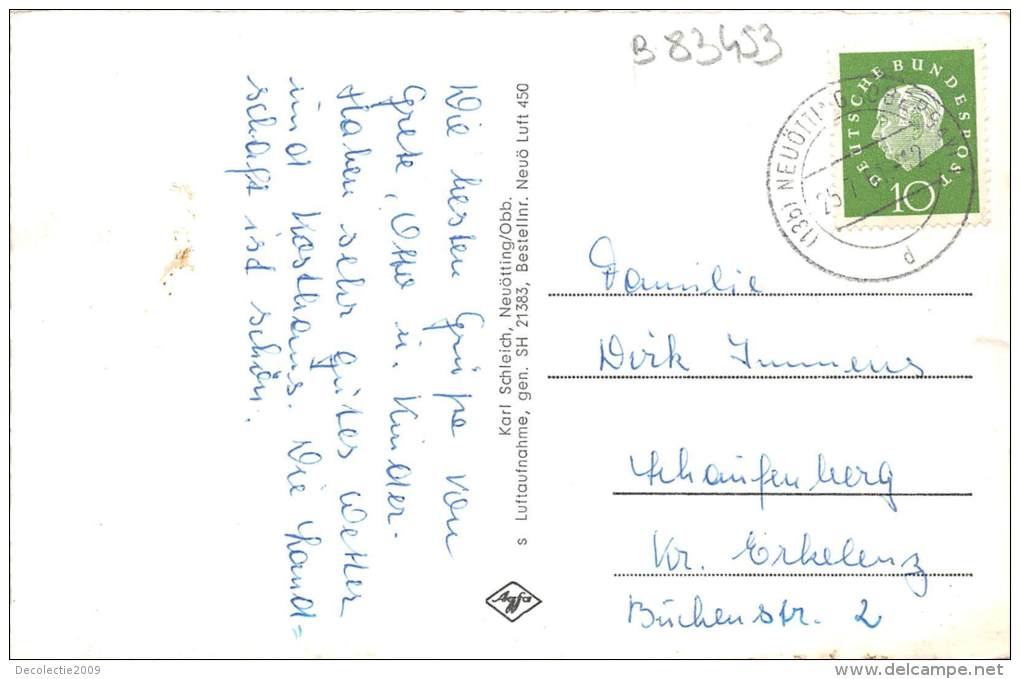 B 83453
DEUTSCHE BUNDESPOST
10
(13b) NEUÖTTING
d
Die besten Grüße von
Grete, Otto u. Kinder.
Haben sehr gutes Wetter
und Kosthaus. Die Land=
schaft ist schön.
Karl Schleich, Neuötting/Obb.
s Luftaufnahme, gen. SH 21383, Bestellnr. Neuö Luft 450
Agfa
Familie
Dirk Immens
Schaufenberg
Kr. Erkelenz
Buchenstr. 2
Decolectie2009
www.delcampe.net